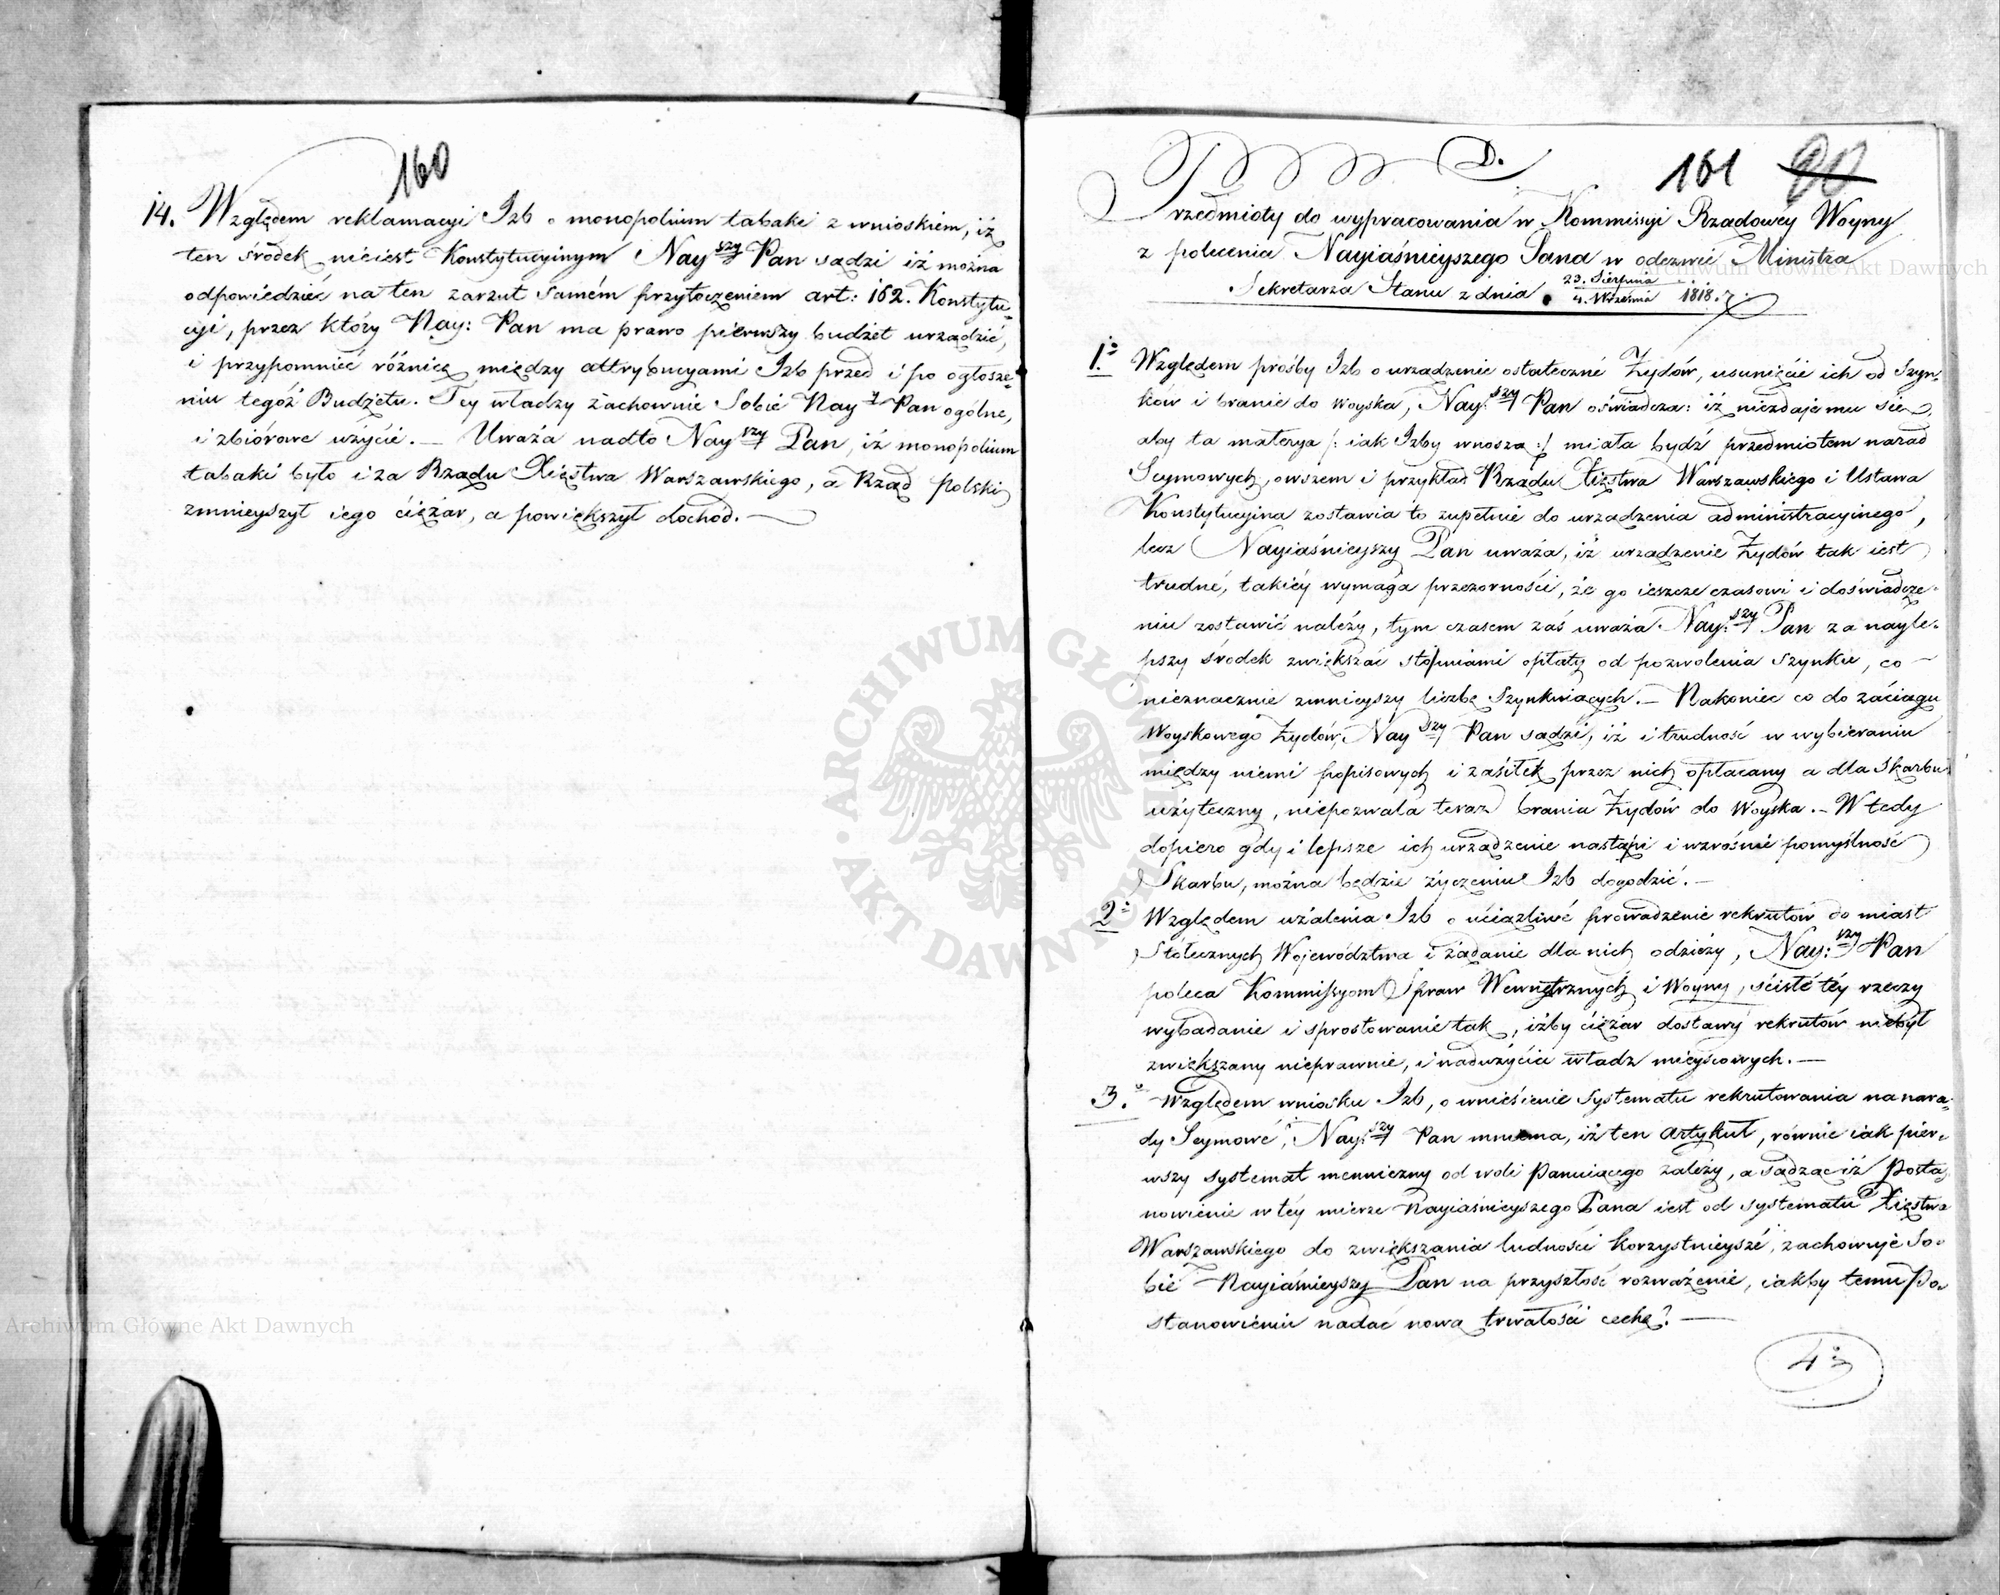 160
14. Względem reklamacyi Izb o monopolium tabaki z wnioskiem, iż
ten środek nieiest Konstytucyinym Nay szy Pan sądzi iż można
odpowiedzić na ten zarzut samém przytoczeniem art: 162. Konstytu-
cyi, przez który Nay: Pan ma prawo pierwszy budżet urządzić,
i przypomnieć różnicę między attrybucyami Izb przed i po ogłosze-
niu tegóż Budżetu. Téy władzy zachownie Sobie Nay y Pan ogólne,
i zbiórowe użycie. — Uważa nadto Nay szy Pan, iż monopolium
tabaki było i za Rządu Xięstwa Warszawskiego, a Rząd Polski
zmnieyszył iego ciężar, a powiększył dochód. —
D.
161 90
Przedmioty do wypracowania w Kommissyi Rządowéy Woyny
z polecenia Nayiaśnieyszego Pana w odezwie Ministra
Sekretarza Stanu z dnia 23. Sierpnia / 4. Września 1818. r.
1.o Względem prośby Izb o urządzenie ostateczné Żydów, usunięcie ich od Szyn-
ków i branie do woyska, Nay: szy Pan oświadcza: iż niezdaje mu się,
aby ta materya /: iak Izby wnoszą :/ miała bydź przedmiotem narad
Seymowych, owszem i przykład Rządu Xięstwa Warszawskiego i Ustawa
Konstytucyina zostawia to zupełnie do urządzenia administracyinego,
lecz Nayiaśnieyszy Pan uważa, iż urządzenie Żydów tak iest
trudné, takiéy wymaga przezorności, że go ieszcze czasowi i doświadcze-
niu zostawić należy, tym czasem zaś uważa Nay: szy Pan za nayle-
pszy środek zwiększać stopniami opłatę od pozwolenia szynku, co
nieznacznie zmnieyszy liczbę Szynkuiących. — Nakoniec co do zaciągu
Woyskowego Żydów, Nay szy Pan sądzi, iż i trudność w wybieraniu
między niemi popisowych i zasiłek przez nich opłacany a dla Skarbu
użyteczny, niepozwala teraz brania Żydów do Woyska. — Wtedy
dopiero gdy i lepsze ich urządzenie nastąpi i wzrośnie pomyślność
Skarbu, można będzie życzeniu Izb dogodzić. —
2.o Względem użalenia Izb o uciążliwé prowadzenie rekrutów do miast
Stołecznych Województwa i żądanie dla nich odzieży, Nay: szy Pan
poleca Kommissyom Spraw Wewnętrznych i Woyny, ściśłé téy rzeczy
wybadanie i sprostowanie tak, iżby ciężar dostawy rekrutów niebył
zwiększany nieprawnie, i nadużycia władz mieyscowych. —
3.o Względem wniosku Izb, o wnieśienie Systematu rekrutowania na nara-
dy Seymowé, Nay: szy Pan mniema, iż ten artykuł, równie iak pier-
wszy systemat menniczny od woli Panuiącego zależy, a sądząc iż Posta-
nowienie w téy mierze Nayiaśnieyszego Pana iest od systematu Xięstwa
Warszawskiego do zwiększania ludności korzystnieyszé, zachowuje So-
bie Nayiaśnieyszy Pan na przyszłość rozważenie, iakby temu Po-
stanowieniu nadać nową trwałości cechę? —
4.o
Archiwum Główne Akt Dawnych
Archiwum Główne Akt Dawnych
ARCHIWUM GŁÓWNE AKT DAWNYCH